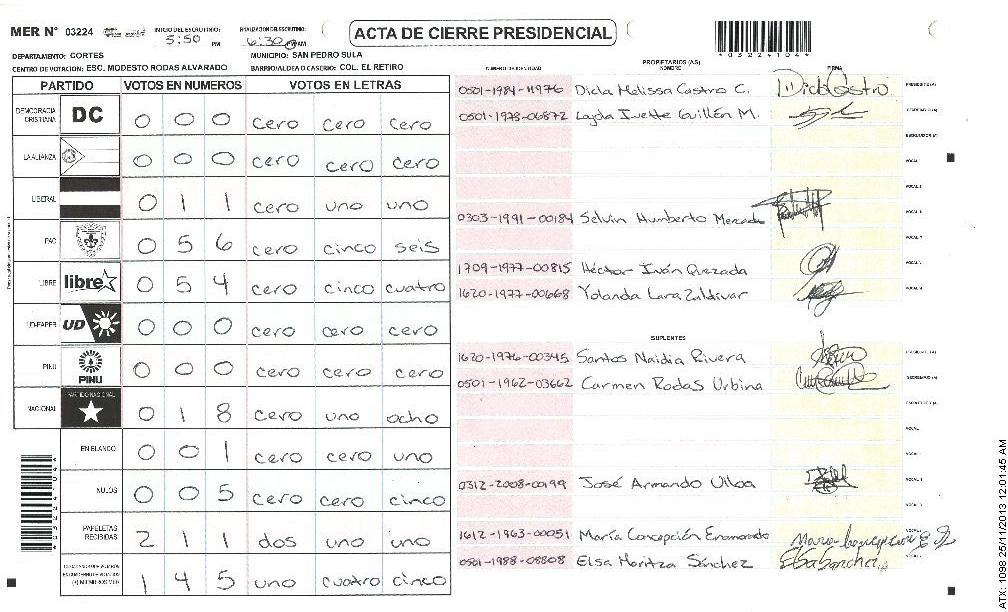 MER N° 03224
INICIO DEL ESCRUTINIO:
5:50 PM
FINALIZACION DEL ESCRUTINIO:
6:30 PM AM
ACTA DE CIERRE PRESIDENCIAL
*03224104*
DEPARTAMENTO: CORTES
MUNICIPIO: SAN PEDRO SULA
CENTRO DE VOTACION: ESC. MODESTO RODAS ALVARADO
BARRIO/ALDEA O CASERIO: COL. EL RETIRO
PARTIDO VOTOS EN NUMEROS VOTOS EN LETRAS
DEMOCRACIA CRISTIANA DC 0 0 0 cero cero cero
LA ALIANZA 0 0 0 cero cero cero
LIBERAL 0 1 1 cero uno uno
PAC 0 5 6 cero cinco seis
LIBRE libre 0 5 4 cero cinco cuatro
UD-FAPER UD 0 0 0 cero cero cero
PINU PINU 0 0 0 cero cero cero
NACIONAL PARTIDO NACIONAL 0 1 8 cero uno ocho
EN BLANCO 0 0 1 cero cero uno
NULOS 0 0 5 cero cero cinco
PAPELETAS RECIBIDAS 2 1 1 dos uno uno
1 4 5 uno cuatro cinco
PROPIETARIOS (AS)
NUMERO DE IDENTIDAD NOMBRE FIRMA
0501-1984-11976 Dicla Melissa Castro C. Dicla Castro PRESIDENTE (A)
0501-1978-06872 Layda Ivette Guillén M. SECRETARIO (A)
ESCRUTADOR (A)
VOCAL 1
VOCAL 2
0303-1991-00184 Selvin Humberto Mercado
1709-1977-00815 Héctor Iván Quezada
1620-1977-00668 Yolanda Lara Zaldívar
SUPLENTES
1620-1976-00345 Santos Naidia Rivera PRESIDENTE (A)
0501-1962-03662 Carmen Rodas Urbina SECRETARIO (A)
ESCRUTADOR (A)
0312-2008-00199 José Armando Ulloa
1612-1963-00051 María Concepción Enamorado
0501-1988-08808 Elsa Maritza Sánchez Elsa Sanchez
ATX: 1098 25/11/2013 12:01:45 AM